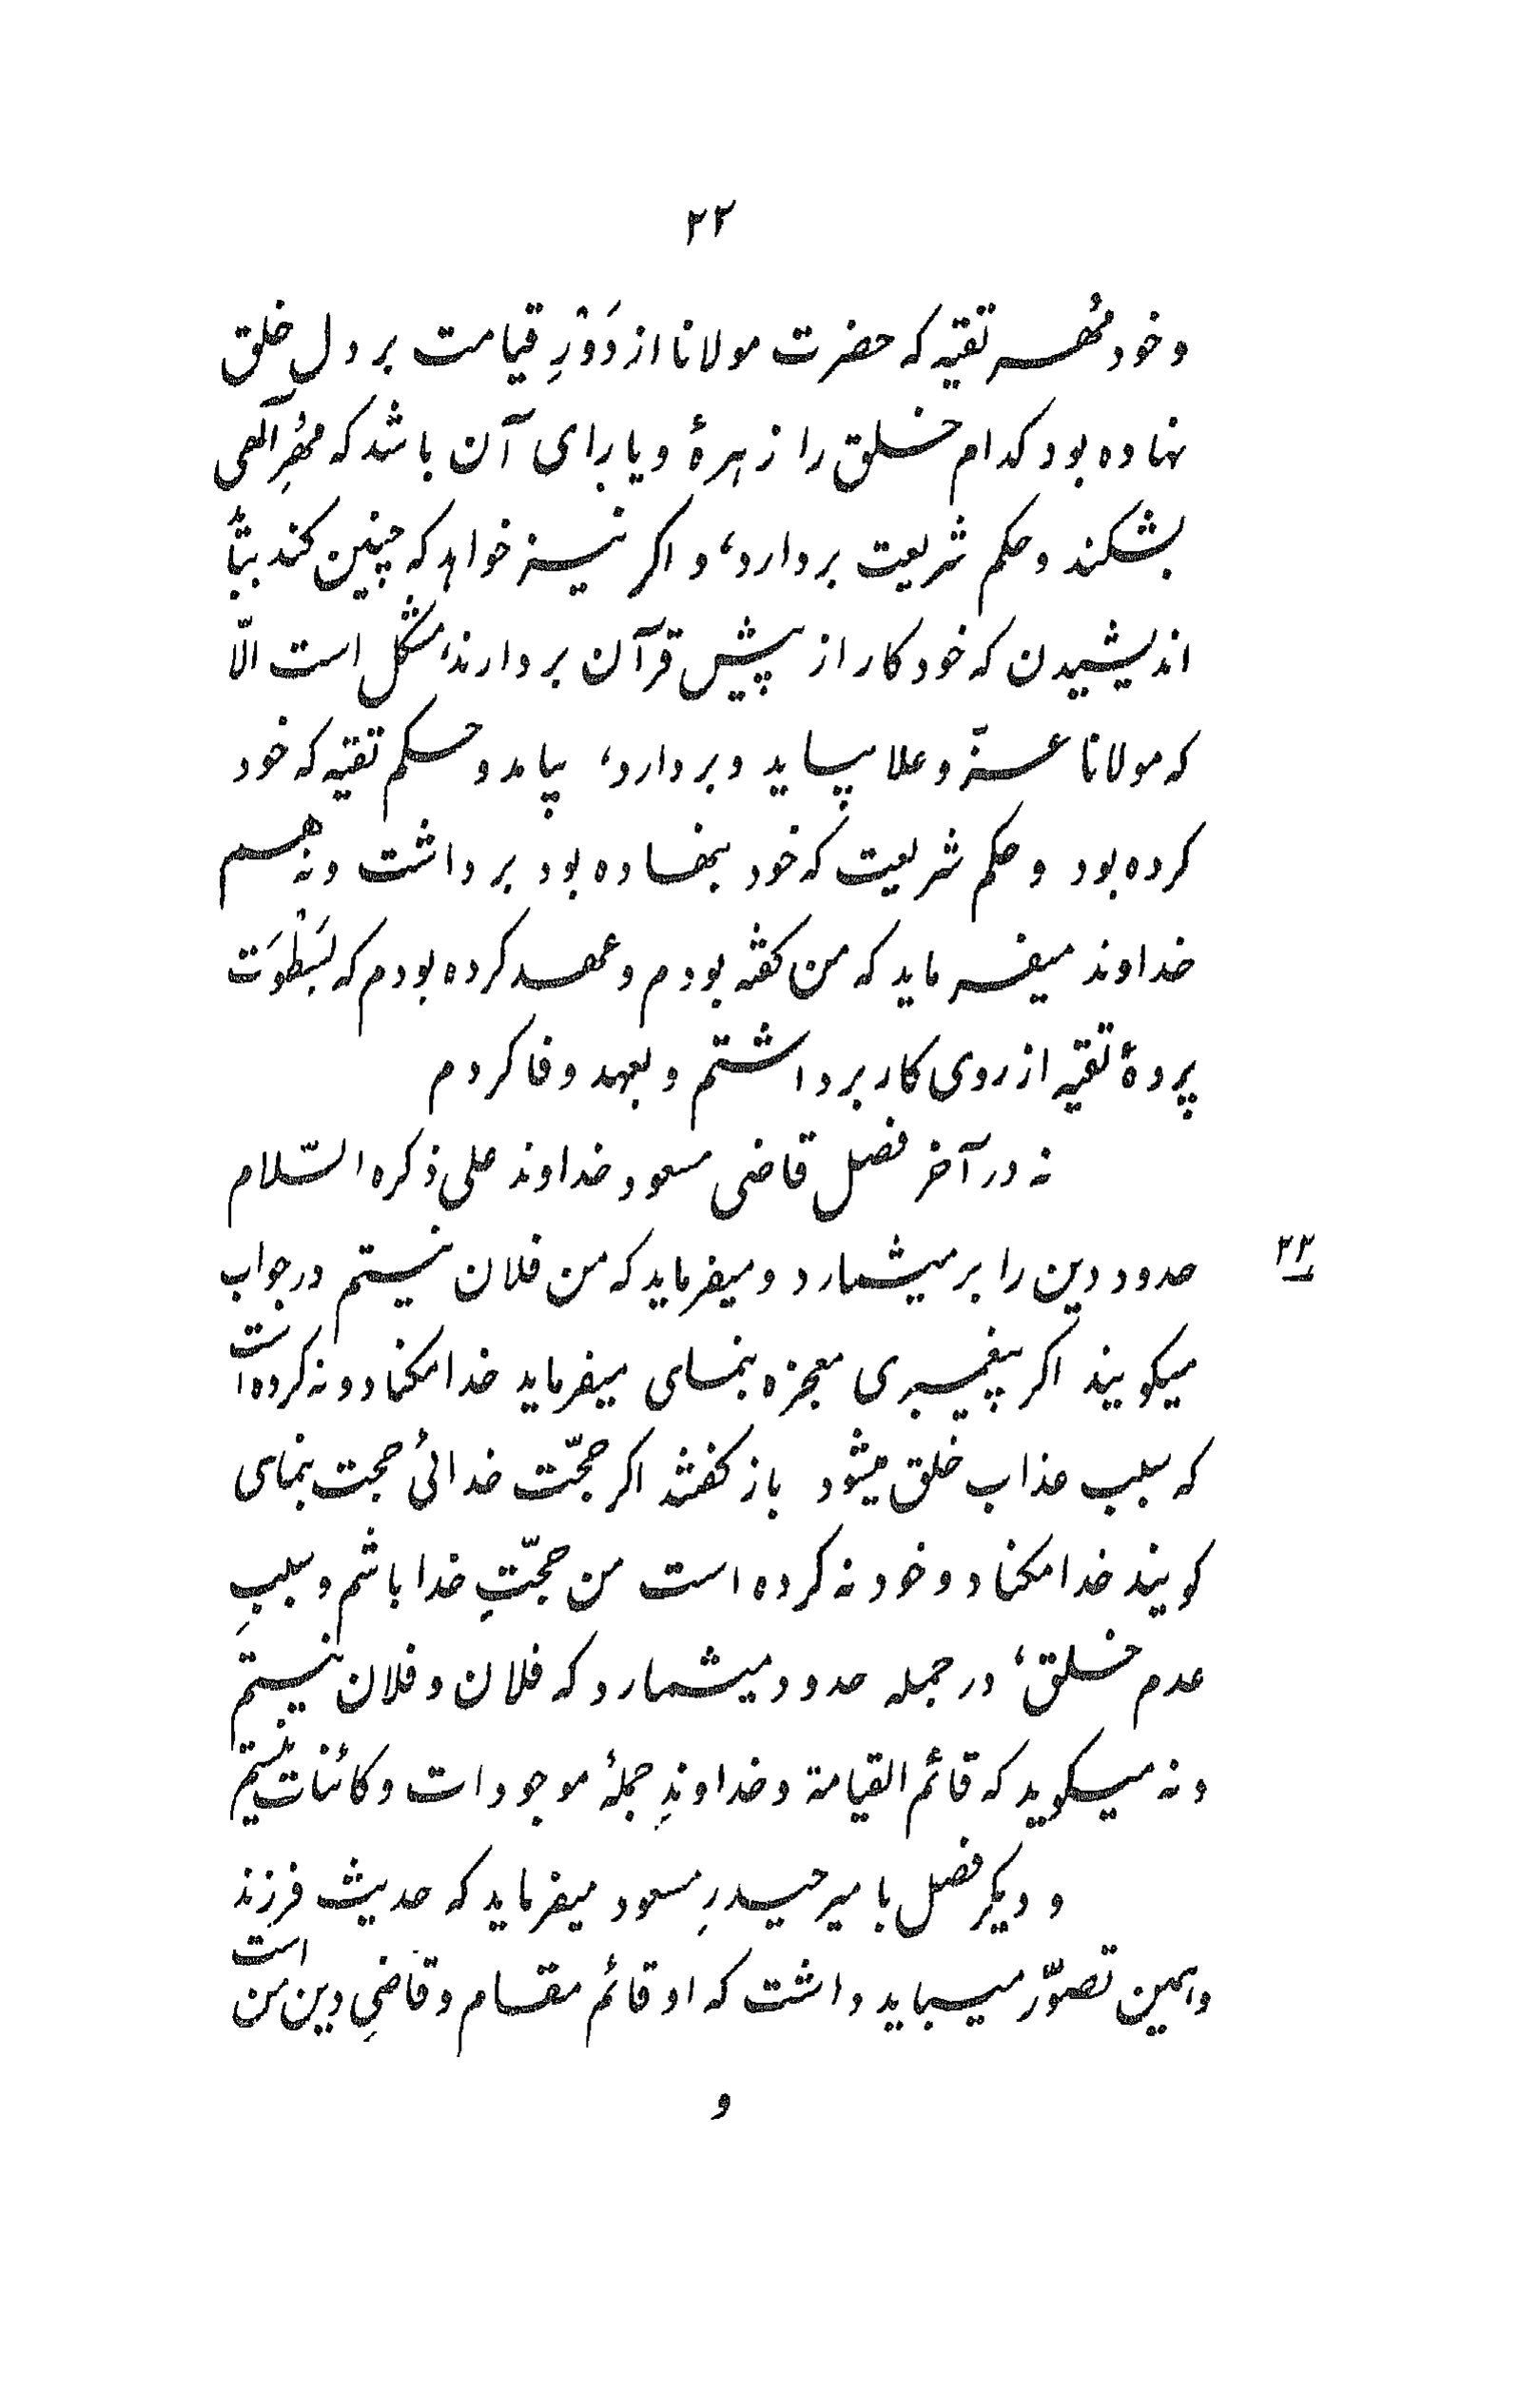 ۲۲
و خود مُهر تقیه که حضرت مولانا از دَوْرِ قیامت بر دل خلق
نهاده بود کدام خلق را زهرهٔ و یارای آن باشد که مُهرِ آلهی
بشکند و حکم شریعت بردارد، و اکر نیز خواهد که چنین کند بتاٌ
اندیشیدن که خود کار از پیش قرآن بردارند، مشکل است الّا
که مولانا عزّ و علا بیاید و بردارد، بیامد و حکم تقیه که خود
کرده بود و حکم شریعت که خود بنهاده بود برداشت و نه هم
خداوند میفرماید که من کفته بودم و عهد کرده بودم که بسَطْوَت
پردهٔ تقیه از روی کار برداشتم و بعهد وفا کردم
نه در آخر فصل قاضی مسعود خداوند علی ذکره السّلام
۲۳ حدود دین را بر میشمارد و میفرماید که من فلان نیستم در جواب
میکویند اکر پیغمبری معجزه بنمای میفرماید خدا مکناد و نه کرده است
که سبب عذاب خلق میشود باز کفتند اکر حجّت خدائی حجت بنمای
کویند خدا مکناد و خود نه کرده است من حجّتِ خدا باشم و سببِ
عدم خلق، در جمله حدود میشمارد که فلان و فلان نیستم
و نه میکوید که قائم القیامة و خداوندِ جملهٔ موجودات و کائنات نیستم
و دیکر فصل با میر حیدرِ مسعود میفرماید که حدیث فرزند
و همین تصوّر میباید داشت که او قائم مقام و قاضیِ دین من است
و